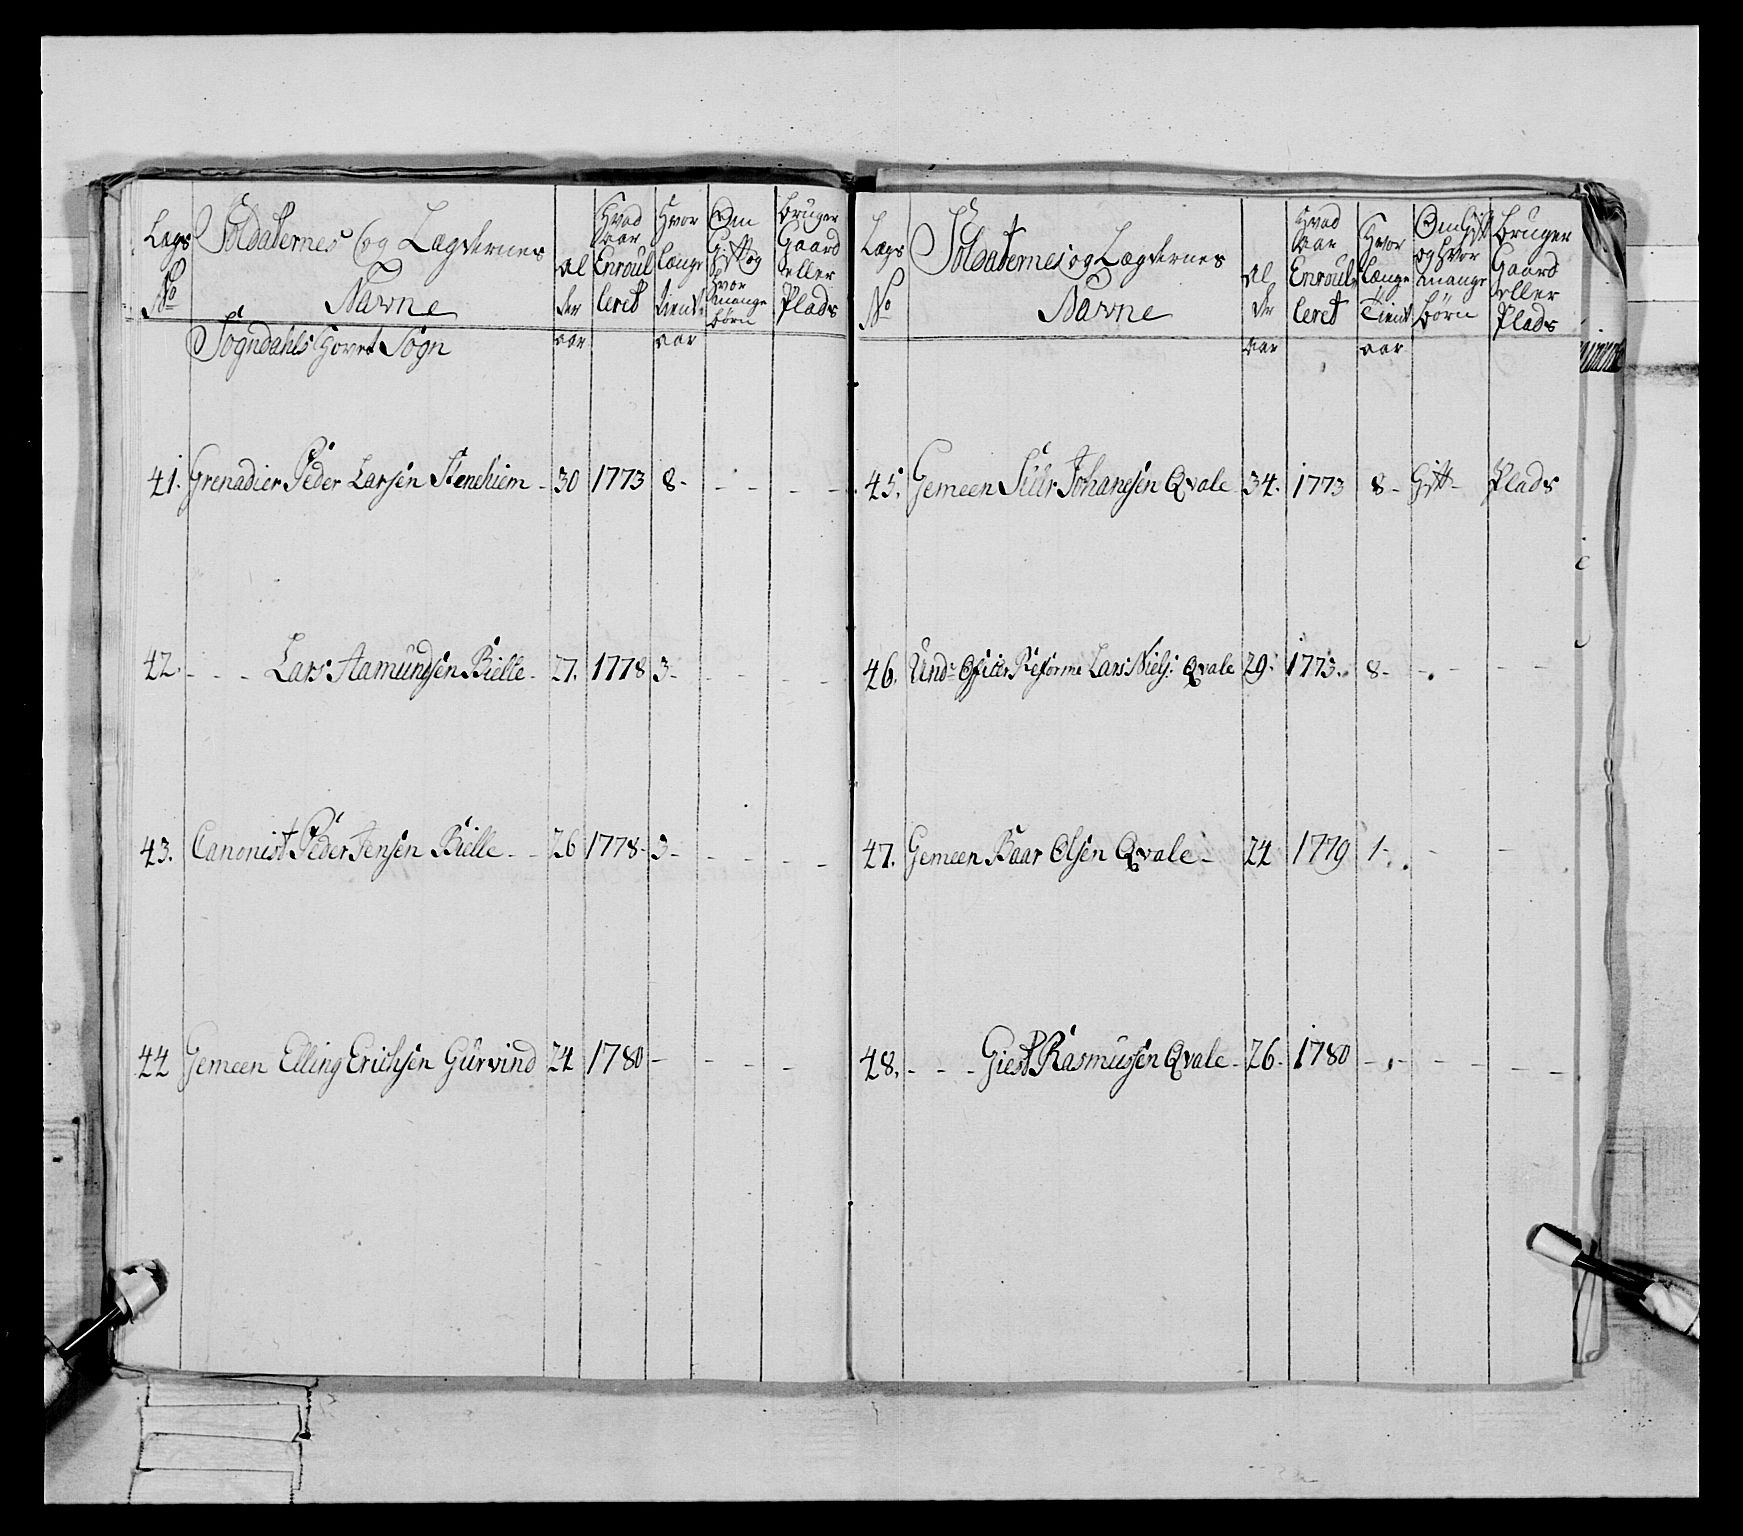 Lægs No
Soldaternes og Lægdernes Navne
Al der aar
Hvad Aar Enroulleret
Hvor længe tient aar
Om Gift og Hvor mange børn
Bruger Gaard eller Plads
Sogndahls Hovet Sogn
41. Grenadier Peder Larsen Stenehiem - 30 1773 8 - - - - -
42. - - Lars Aamundsen Bielle - 27. 1778 3 - - - - -
43. Canonist Peder Jensen Bielle - - 26 1778 - 3 - - - - -
44 Gemeen Elling Erichsen Gurvind 24 1780 - - - -
Lægs No
Soldaternes og Lægdernes Navne
Al der Aar
Hvad Aar Enroulleret
Hvor længe Tient aar
Om Gift og Hvor mange børn
Bruger Gaard eller Plads
45. Gemeen Siur Johanesen Qvale - 34. 1773 8 - Gift - Plads
46. Und: Officier Reforme Lars Niels: Qvale 29. 1773. 8 - - - - -
47. Gemeen Baar Olsen Qvale - 24 1779 1 - - -
48. - - - Giest Rasmussen Qvale - 26. 1780 - - - - -